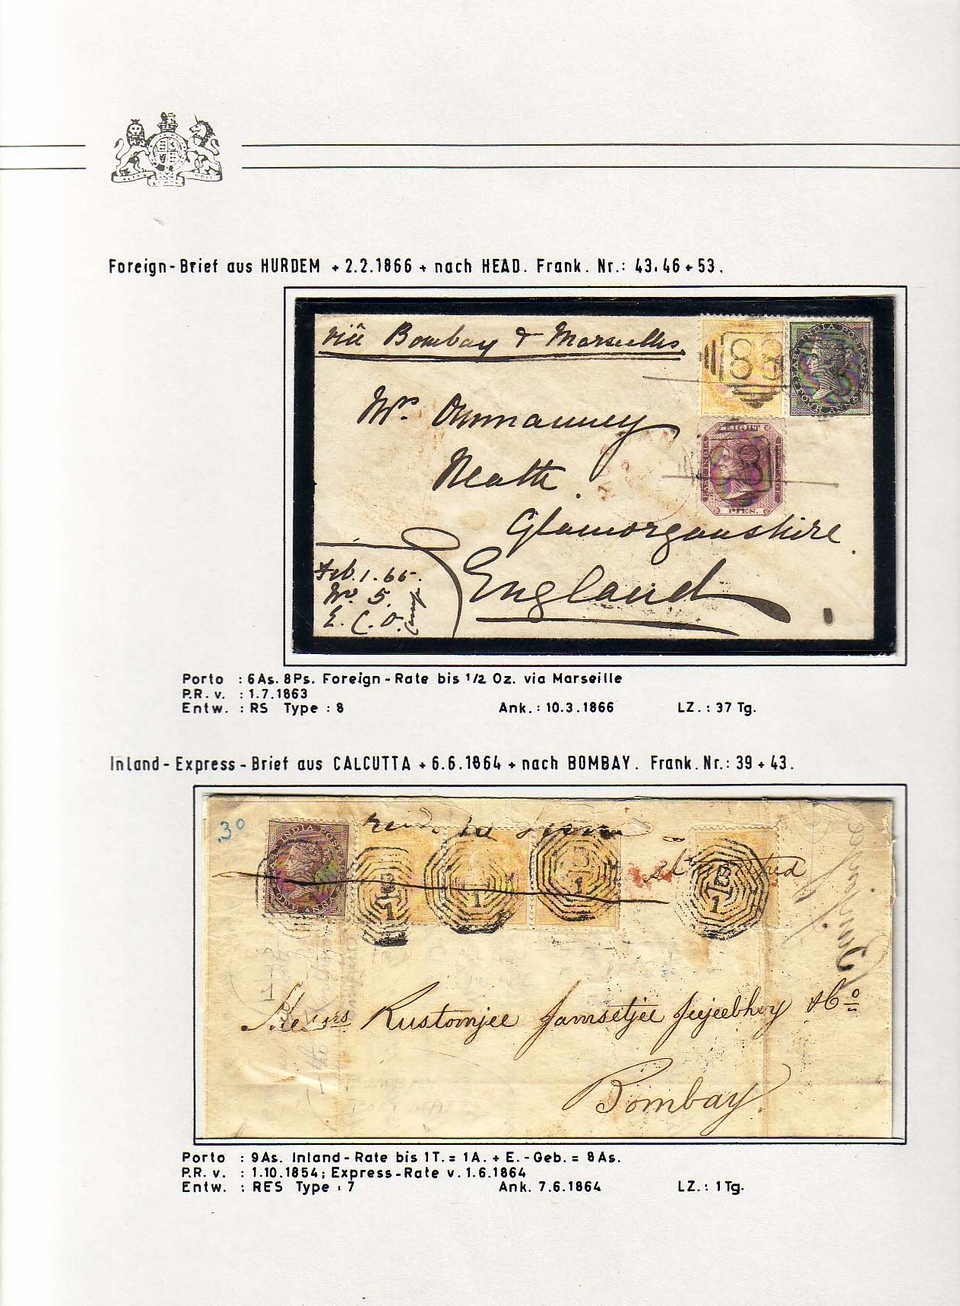 Foreign-Brief aus HURDEM + 2.2.1866 + nach HEAD. Frank. Nr.: 43.46 + 53.
via Bombay & Marseilles
EAST INDIA POSTAGE
FOUR ANNAS
88
Mrs. Ommanney
EIGHT
PIES.
Neath.
Glamorganshire.
England
Feb. 1. 66.
No 5.
E. C. O.
Porto : 6As. 8Ps. Foreign-Rate bis 1/2 Oz. via Marseille
P.R. v. : 1.7.1863
Entw. : RS Type : 8 Ank.: 10.3.1866 LZ.: 37 Tg.
Inland-Express-Brief aus CALCUTTA + 6.6.1864 + nach BOMBAY. Frank. Nr.: 39 + 43.
30
B 1
B 1
B 1
Messrs Rustomjee Jamsetjee Jejeebhoy & Co
Bombay.
Porto : 9As. Inland-Rate bis 1T. = 1A. + E.-Geb. = 8As.
P.R. v. : 1.10.1854; Express-Rate v. 1.6.1864
Entw. : RES Type : 7 Ank. 7.6.1864 LZ.: 1Tg.